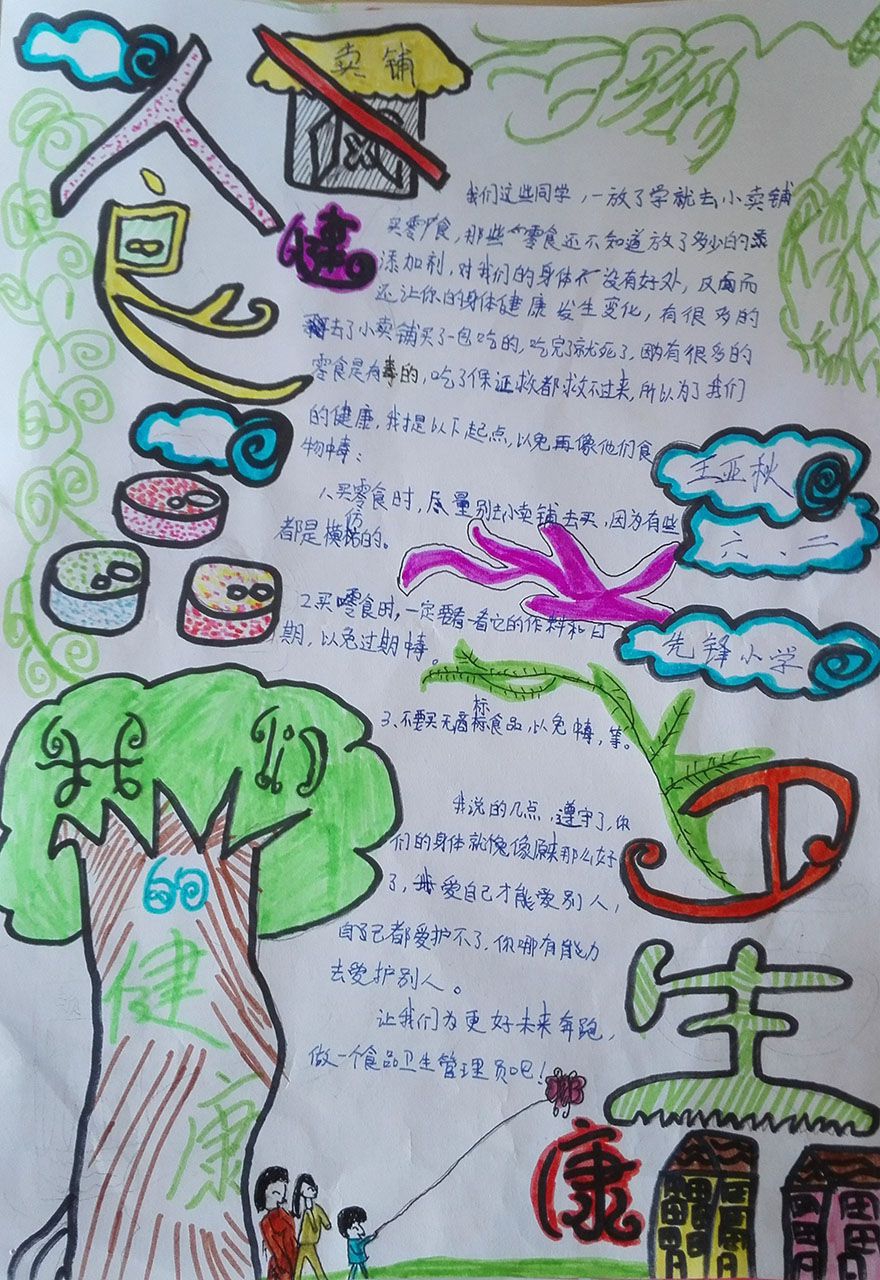 食
卖铺
健
我们这些同学，一放了学就去小卖铺
买零食，那些零食还不知道放了多少的
添加剂，对我们的身体不没有好处，反而
还让你的身体健康发生变化，有很多的
去了小卖铺买了一包吃的，吃完了就死了，因有很多的
零食是有毒的，吃了保证救都救不过来，所以为了我们
的健康，我提以下起点，以免再像他们食
物中毒：
1、买零食时，尽量别去小卖铺去买，因为有些
都是模仿的。
王亚秋
六、二
先锋小学
2、买零食时，一定要看一看它的作料和日
期，以免过期中毒。
3、不要买无商标食品，以免中毒，等。
我说的几点，遵守了，你
们的身体就像原来那么好
了，我爱自己才能爱别人，
自己都爱护不了，你哪有能力
去爱护别人。
让我们为更好未来奔跑，
做一个食品卫生管理员吧！
卫
生
康
的
健
康